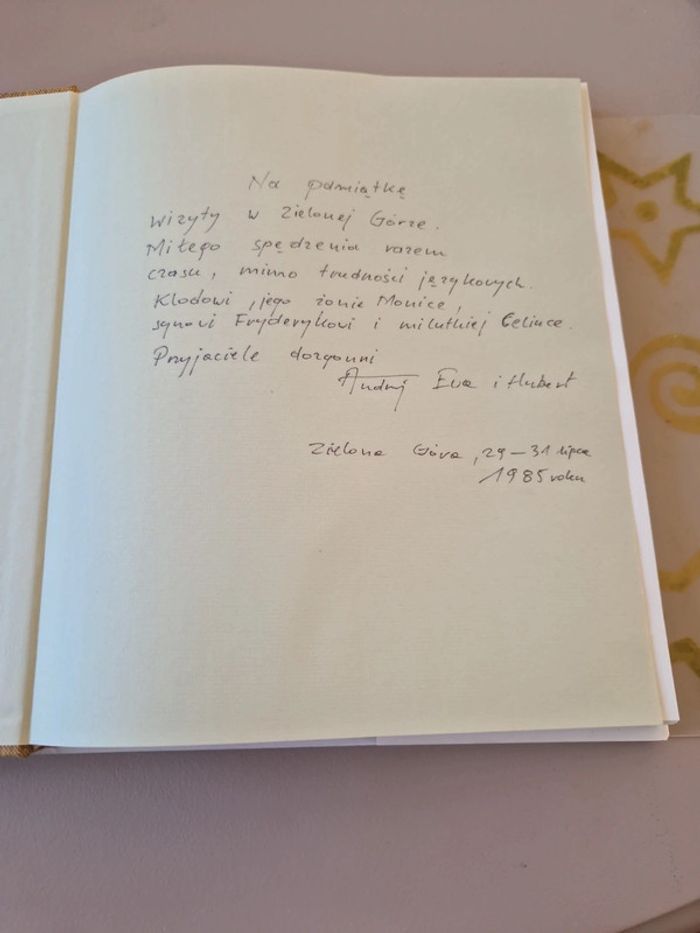 Na pamiątkę
wizyty w Zielonej Górze.
Miłego spędzenia razem
czasu, mimo trudności językowych.
Klodowi, jego żonie Monice,
synowi Fryderykowi i milutkiej Celince.
Przyjaciele dozgonni
Andrzej Ewa i Hubert
Zielona Góra, 29-31 lipca
1985 roku